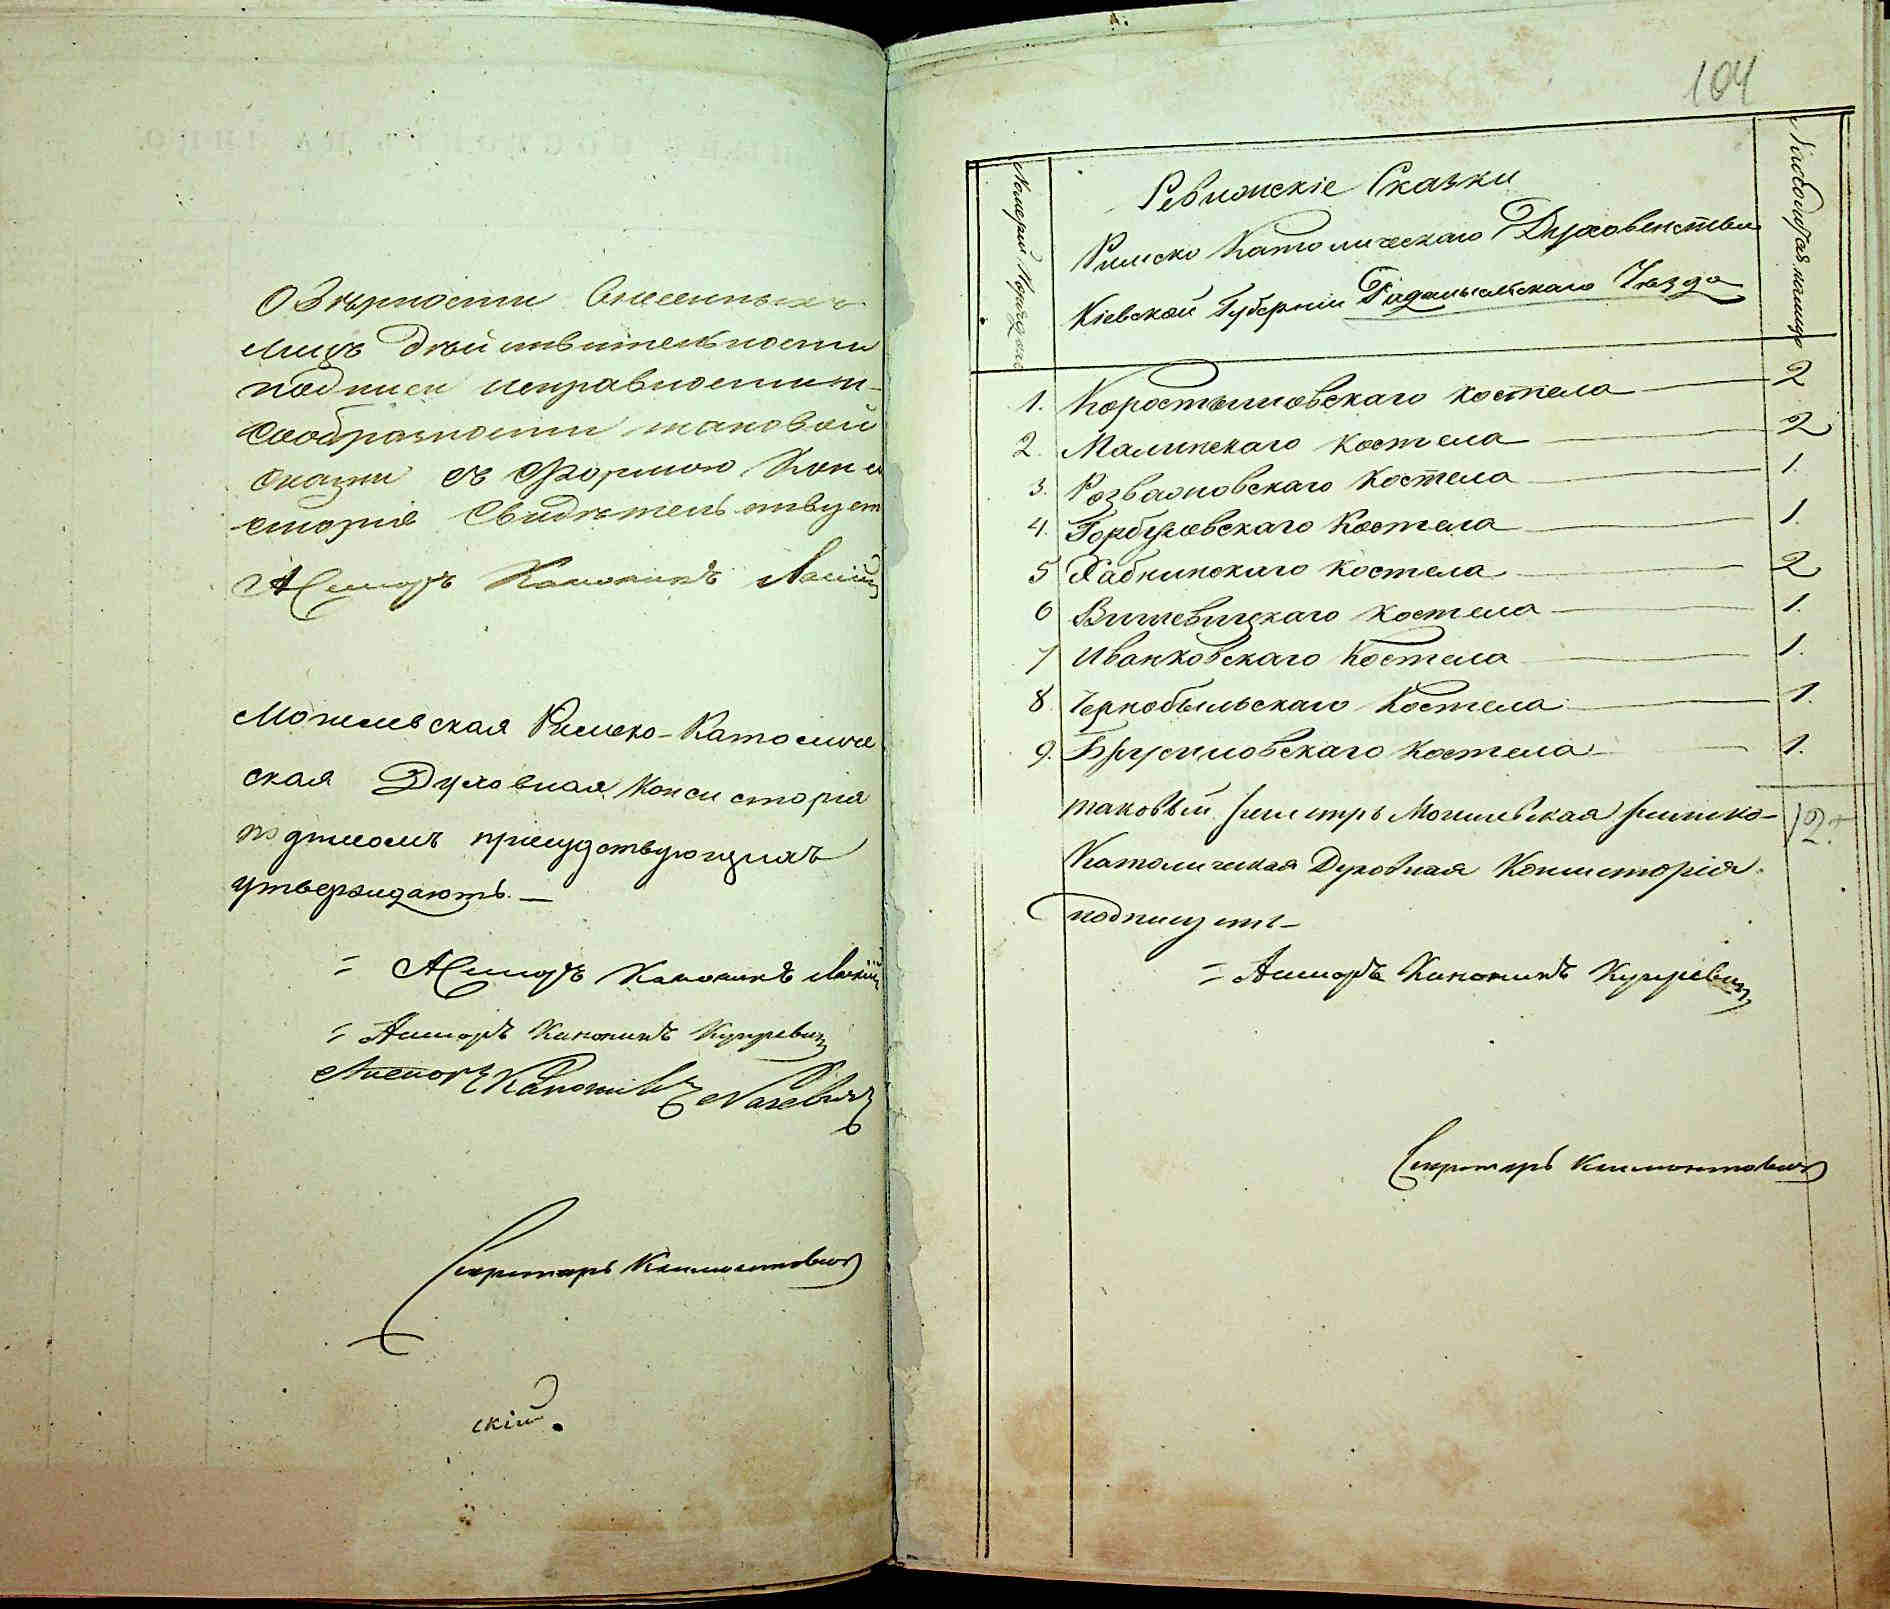 О вѣрности внесенныхъ
лицъ дѣйствительности
подписи исправности и
сообразности таковой
сказки съ формою Конси
сторія свидѣтельствуетъ
Асессоръ Каноникъ
Могилевская Римско-Католиче
ская Духовная Консисторія
подписомъ присудствующихъ
утверждаютъ. —
= Асессоръ Каноникъ
= Асессоръ Каноникъ Куцревичъ
Асессоръ Каноникъ
Секретарь Климонтович
скій.
104
Номерки Порядочн.
Ревижскіе Сказки
Римско Католическаго Духовенства
Кіевской Губерніи Радомысльскаго Уѣзда
Число листовъ
1. Коростышовскаго костела — 2
2. Малинскаго костела — 2
3. Розважовскаго костела — 1.
4. Горбулевскаго Костела — 1.
5 Хабнинскаго костела — 2
6 Вишевицкаго костела — 1.
7 Иванковскаго Костела — 1.
8. Чернобыльскаго Костела — 1.
9. Брусиловскаго костела — 1.
12.
таковый реистръ Могилевская римско-
Католическая Духовная Консисторія
подписуетъ —
= Асессоръ Каноникъ Куцревичъ
Секретарь Климонтович